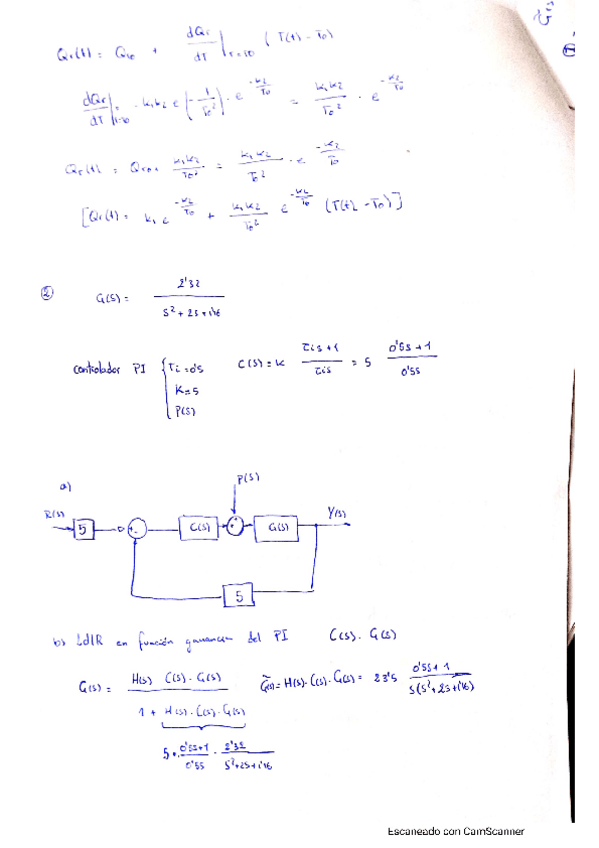 Qr(t) = Qr0 + dQr/dT |T=T0 (T(t) - T0)
dQr/dT |T=T0 · k1k2 e (-1/T0²) · e^(-k2/T0) = k1k2/T0² · e^(-k2/T0)
Qr(t) = Qr0 · k1k2/T0² = k1k2/T0² · e^(-k2/T0)
[Qr(t) = k1 e^(-k2/T0) + k1k2/T0² e^(-k2/T0) (T(t) - T0)]
② G(s) = 2'32 / s² + 2s + 1'16
controlador PI { Ti = 0'5 C(s) = K τis + 1 / τis = 5 0'5s + 1 / 0'5s
K = 5
P(s)
a) P(s)
R(s) 5 + - C(s) G(s) Y(s)
5
b) LdlR en función ganancia del PI C(s) · G(s)
G(s) = H(s) C(s) · G(s) / 1 + H(s) · C(s) · G(s) G̃(s) = H(s) · C(s) · G(s) = 23'5 0'5s + 1 / s(s² + 2s + 1'16)
5 · 0'5s + 1 / 0'5s · 2'32 / s² + 2s + 1'16
Escaneado con CamScanner